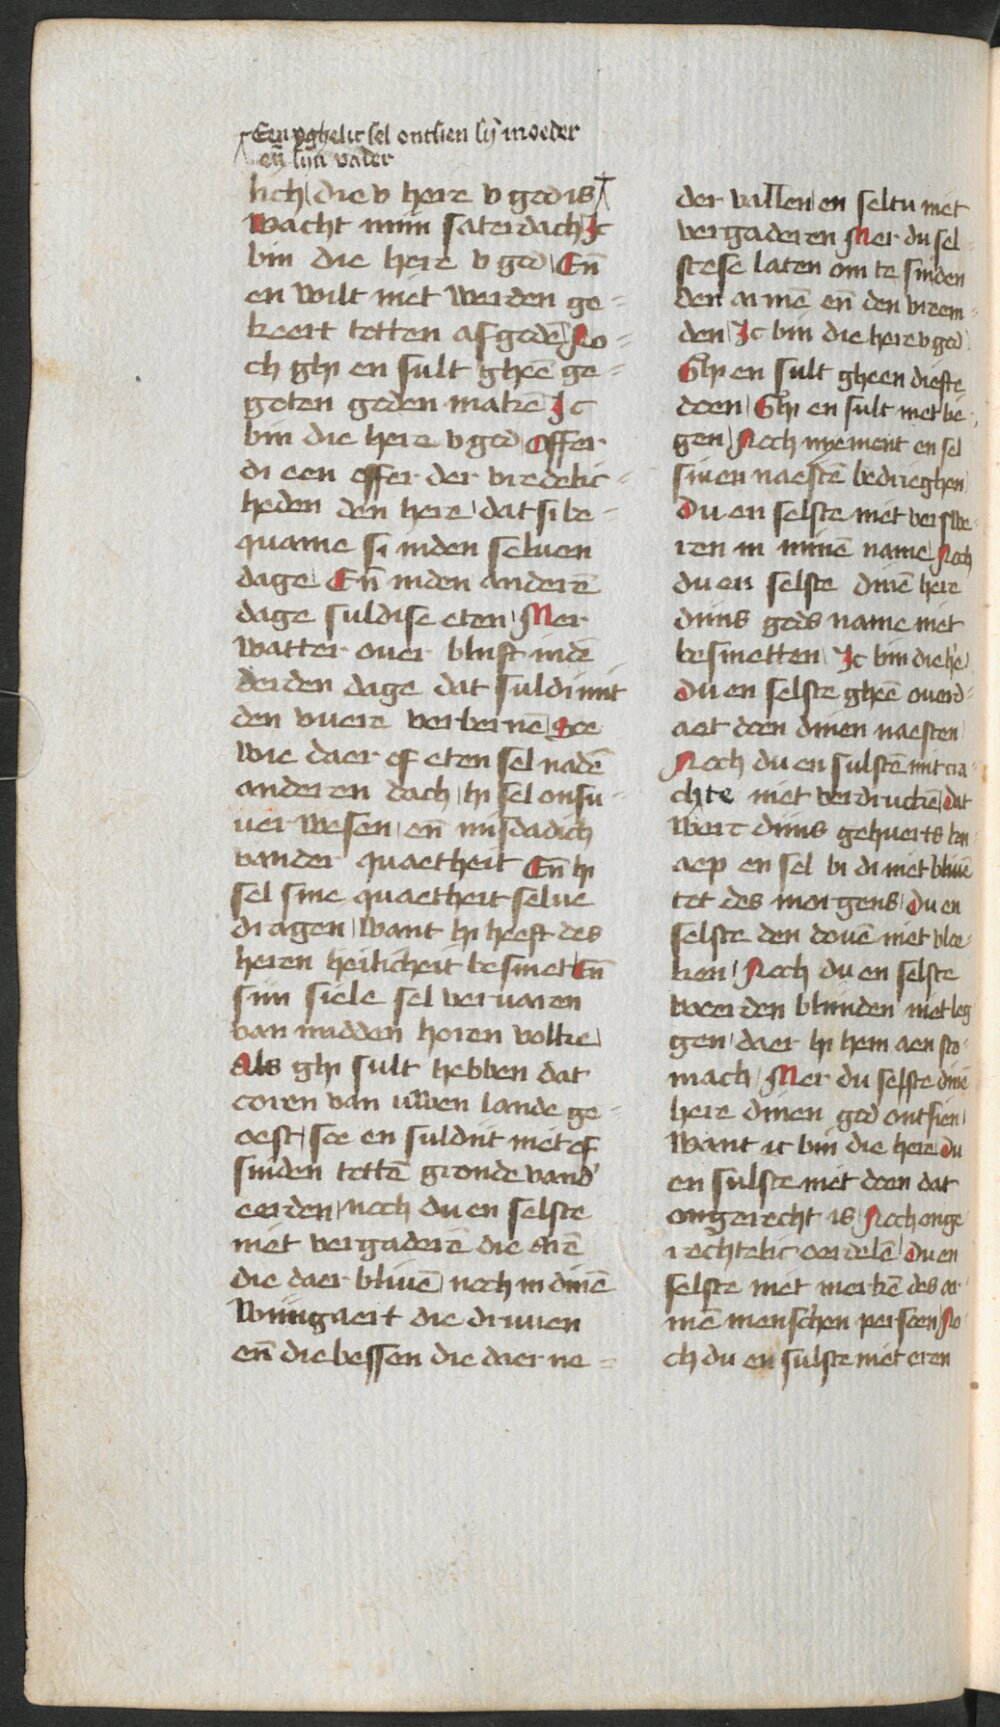 Een yghelic sel ontsien sȳ moeder
eñ sijn vader
lich die v here v god is
Wacht mijn saterdach Ic
bin die here v god Eñ
en wilt niet werden ge =
keert totten afgodē No =
ch ghi en sult gheē ge =
goten goden makē Ic
bin die here v god Offer
di een offer der vredelic =
heden den here dat si be =
quame si inden seluen
dage Eñ inden anderē
dage suldise eten Mer
watter ouer blijft indē
derden dage dat suldi mit
den vuere verbernē Soe
wie daer of eten sel nadē
anderen dach hi sel onsu =
uer wesen eñ misdadich
vander quaetheit Eñ hi
sel sine quaetheit selue
dragen want hi heeft des
heren heilicheit besmet Eñ
sijn siele sel veruaren
van midden horen volke
Als ghi sult hebben dat
coren van uwen lande ge =
oest soe en suldijt niet of
sniden tottē gronde vand'
eerden noch du en selste
niet vergaderē die arē
die daer bliuē noch in dinē
wijngaert die druuen
eñ die bessen die daer ne =
der vallen en seltu niet
vergaderen Mer du sel =
stese laten om te sinden
den armē eñ den vreem =
den Ic bin die here v god
Ghi en sult gheen diefte
doen Ghi en sult niet lie =
gen Noch nyement en sel
sinen naestē bedrieghen
Du en selste niet verswe =
ren in minē name Noch
du en selste dinē here
dijns gods name niet
besmetten Ic bin die he'
Du en selste gheē ouerd =
aet doen dinen naesten
Noch du en sulstē mit cra =
chte niet verdruckē dat
woert dijns gehuerts kn =
aep en sel bi di niet bliuē
tot des morgens Du en
selste den douē niet vloe =
ken Noch du en selste
voer den blinden niet leg
gen daer hi hem aen sto =
mach Mer du selste dinē
here dinen god ontsien
want ic bin die here Du
en sulste niet doen dat
ongerecht is Noch onge
rechtelic oerdelē Du en
selste niet merkē des ar
mē menschen persoen No
ch du en sulste niet eren